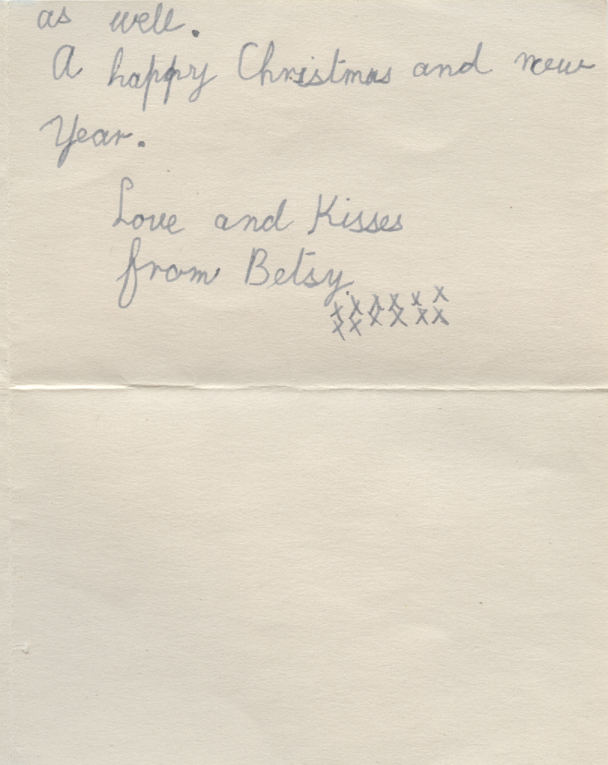 as well.
A happy Christmas and new
Year.
Love and Kisses
from Betsy.
xxxxxx
xxxxxx